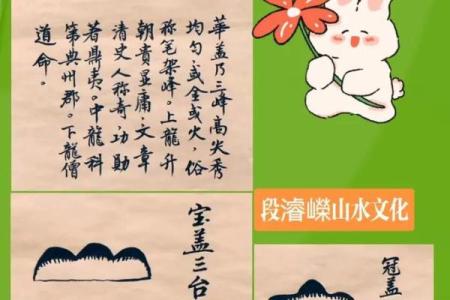 華盖乃三峰高尖秀
均匀。或金或火，俗
称笔架峰。上龍升
朝貴显庸，文章
清史人称奇，功勋
著鼎夷。中龍科
第典州郡。下龍僧
道命。
段濬嶸山水文化
宝盖三台
冠盖